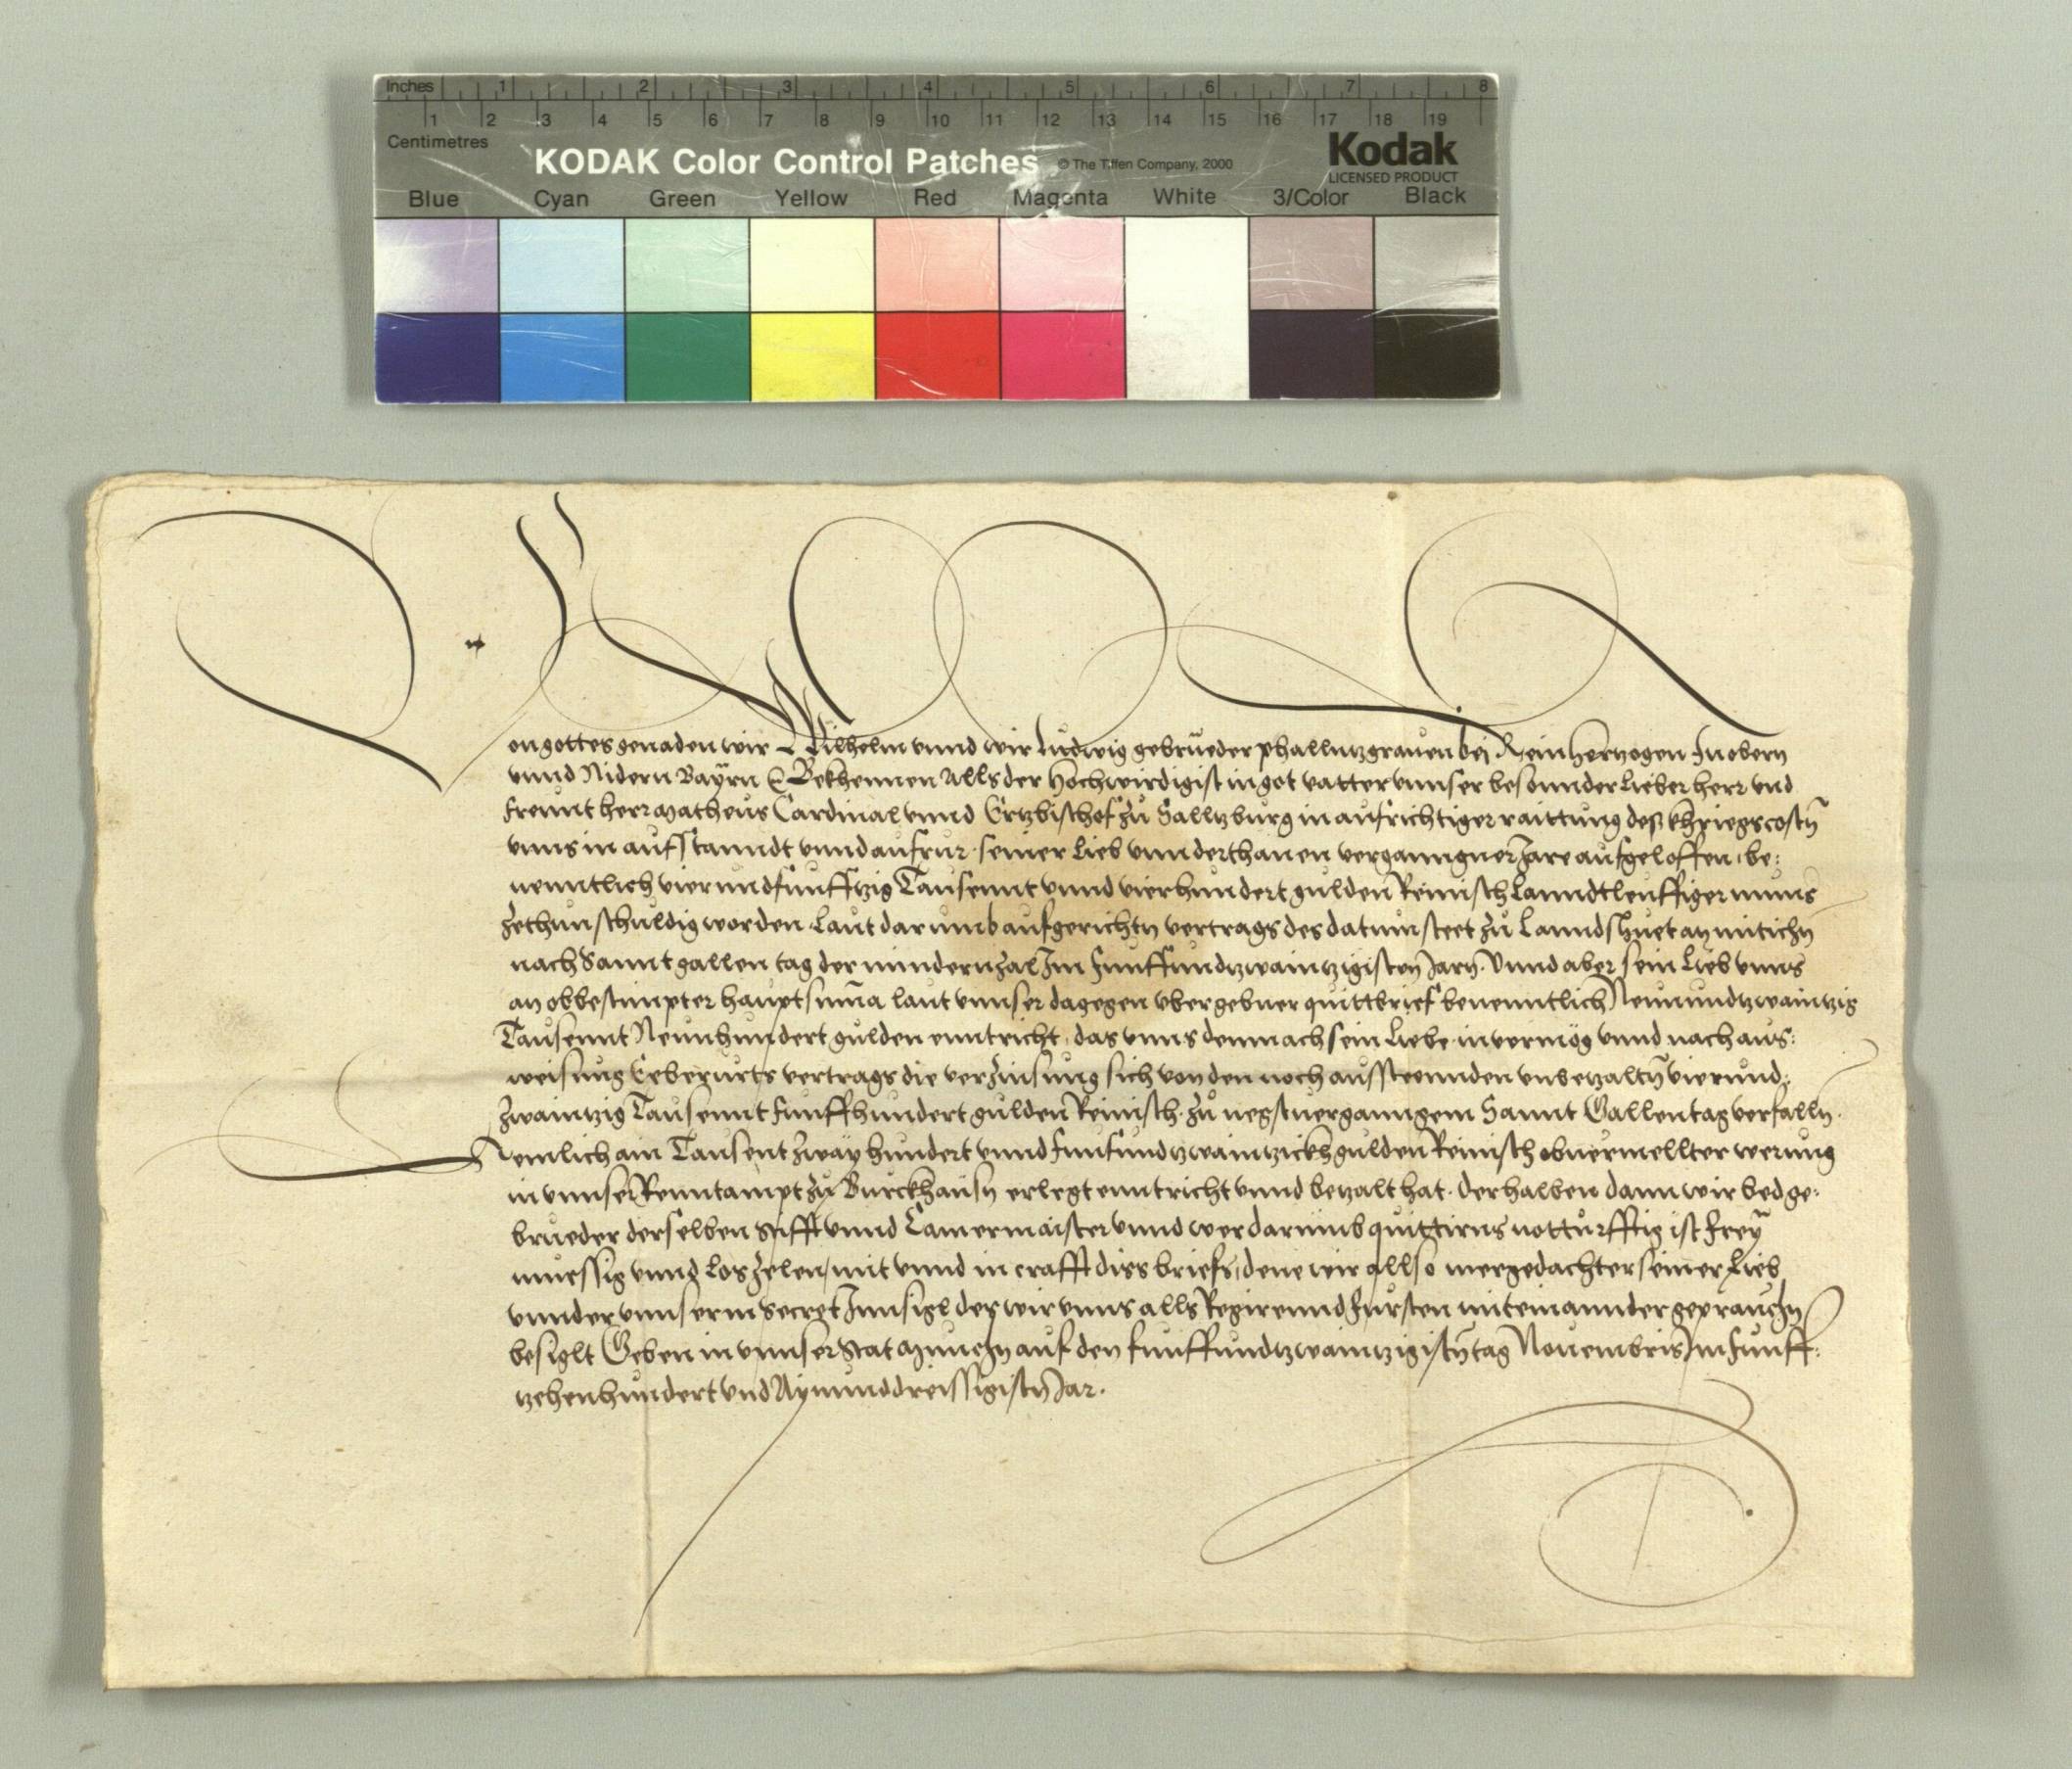 Inches 1 2 3 4 5 6 7 8
1 2 3 4 5 6 7 8 9 10 11 12 13 14 15 16 17 18 19
Centimetres
KODAK Color Control Patches © The Tiffen Company, 2000 Kodak
LICENSED PRODUCT
Blue Cyan Green Yellow Red Magenta White 3/Color Black
Von gottes genaden wir Wilhelm vnnd wir Ludwig gebrueder phallnntzgrauen bej Rein hertzogen Jn obern
vnnd Nidern Bayrn &c Bekhennen Alls der hochwirdigist in got vatter vnnser besonnder Lieber herr vnd
freunt herr Matheus Cardinal vnnd Ertzbischof zu Salltzburg in aufrichtiger raittung des khriegscostn
vnns in aufstanndt vnnd aufrur seiner Lieb vnnderthanen verganngner Jare aufgeloffen, be:
nenntlich vierundfunfftzig Tausennt vnnd vierhundert gulden Reinisch Lanndtleuffiger muns
zethun schuldig worden Laut darumb aufgerichtn vertrags des datum steet zu Lanndshuet an mitichn
nach Sannt gallen tag der mindern zal Jm funffundtzwaintzigisten Jarn. Vnnd aber sein Lieb vnns
an obbestimpter hauptsuma laut vnnser dagegen vbergebner quittbrief benenntlich Neunundtzwaintzig
Tausennt Neunhundert gulden enntricht, das vnns demnach sein Liebe in vermög vnnd nach aus:
weisung Eeberurts vertrags die verzinsung sich von den noch aussteennden vnbetzaltn vierund:
zwaintzig Tausennt funffhundert gulden Reinisch. zu negstuerganngem Sannt Gallentag verfalln.
Nemlich ain Tausent zway hundert vnnd funfundtzwaintzickh gulden Reinisch obuermellter werung
in vnnser Renntampt zu Burckhausn erlegt enntricht vnnd betzalt hat. derhalben dann wir bed ge:
brueder derselben Stifft vnnd Camermaister vnnd wer darumb quittirns notturfftig ist frey
muessig vnnd Los zelen, mit vnnd in crafft diss briefs, dene wir allso mergedachter seiner Lieb
vnnder vnnserm Secret Jnnsigl des wir vnns alls Regirennd fursten miteinannder geprauchn
besiglt Geben in vnnser Stat Munchn auf den funffundtzwaintzigistn tag Nouembris Jm funff:
tzehenhundert vnd Aynunddreissigistn Jar.